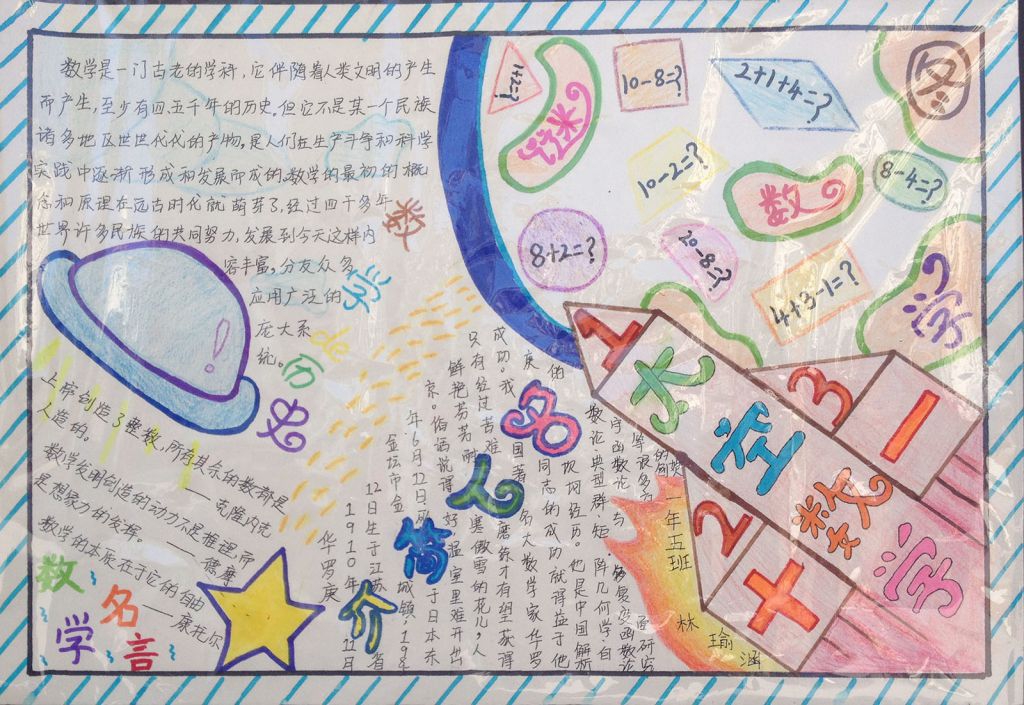 数学是一门古老的学科，它伴随着人类文明的产生
而产生，至少有四、五千年的历史。但它不是某一个民族
诸多地区世世代代的产物，是人们在生产斗争和科学
实践中逐渐形成和发展而成的。数学的最初的概
念和原理在远古时代就萌芽了，经过四千多年
世界许多民族的共同努力，发展到今天这样内
容丰富，分友众多
应用广泛的
庞大系
统。
数学de历史
上帝创造了整数，所有其余的数都是
人造的。
——克隆内克
数学发明创造的动力不是推理，而
是想象力的发挥。——德摩
数学的本质在于它的自由
——康托尔
数学名言
1+2=?
10-8=?
2+1+4=?
10-2=?
8-4=?
8+2=?
20-8=?
4+3-1=?
冬
数
学
太空数学
1
2
3
一
十
名人简介
华罗庚
1910年11月
12日生于江苏省
金坛市金城镇，198
年6月12日
于日本东
京。他
说得好：温室里难开出
鲜艳芬芳耐寒傲雪的花儿，人
只有经过苦难磨练才有望获得
成功。我国著名大数学家华罗
庚
同志的成功就得益于他
坎坷经历。他是中国解析
数论、典型群、矩阵几何学、自
守函数论与多复变函数论
等很多方面研究
一年五班
林瑜涵